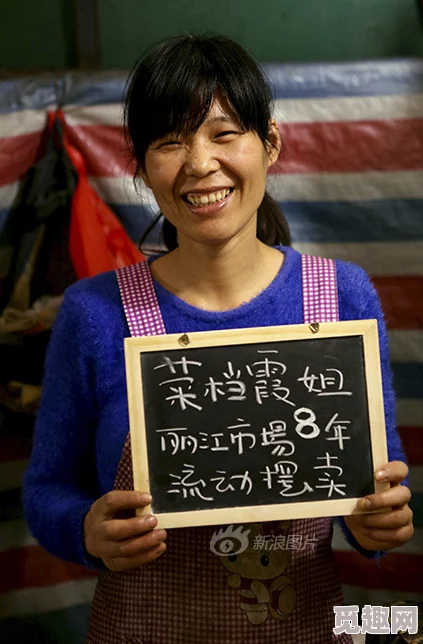 菜档霞姐
丽江市場8年
流动摆卖
新浪图片
觅趣网